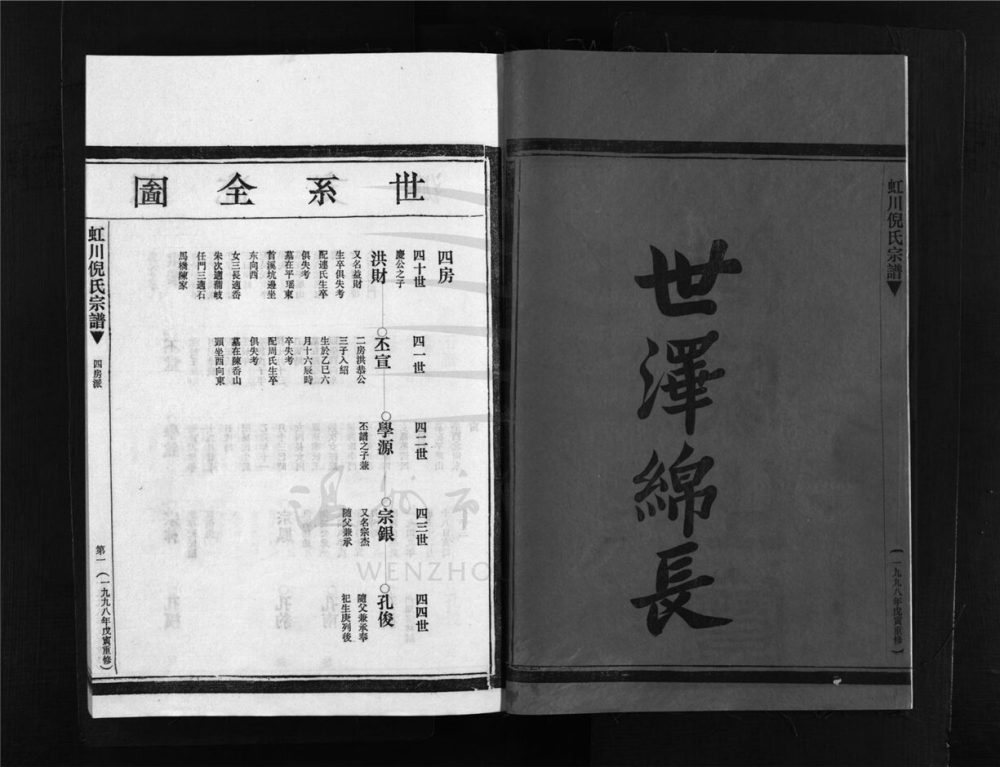 虹川倪氏宗譜
(一九九八年戊寅重修)
世澤綿長
世系全圖
四房
四十世
慶公之子
洪財
又名益財
生卒俱失考
配連氏生卒
俱失考
墓在平瑶東
首溪坑邊坐
东向西
女三長適香
朱次適蒲岐
任門三適石
馬橋陳家
四一世
丕宣
二房洪恭公
三子入紹
生於乙巳六
月十六辰時
卒失考
配周氏生卒
俱失考
墓在陳岙山
頭坐西向東
四二世
學源
丕譜之子兼
四三世
宗銀
又名宗杰
随父兼承
四四世
孔俊
隨父兼承奉
祀生庚列後
虹川倪氏宗譜
四房派
第一
(一九九八年戊寅重修)
WENZHO